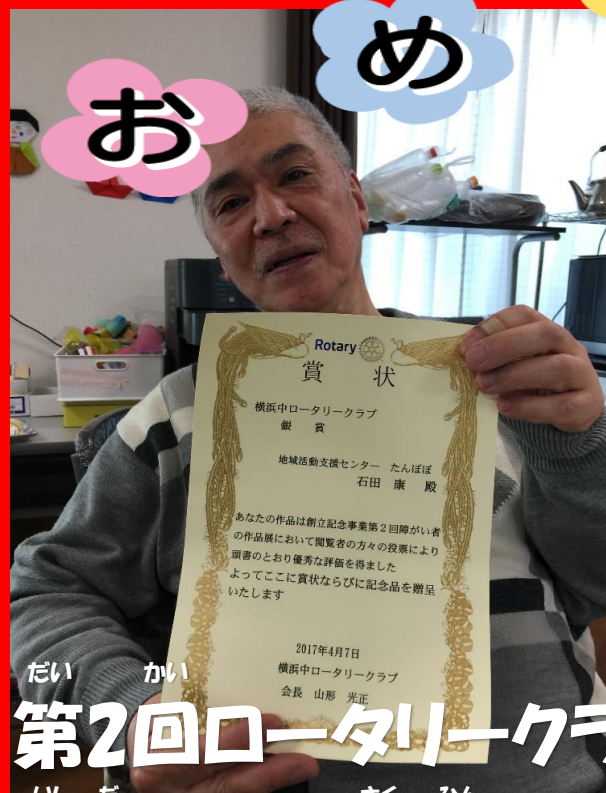 お
め
Rotary
賞 状
横浜中ロータリークラブ
銀 賞
地域活動支援センター たんぽぽ
石田 康 殿
あなたの作品は創立記念事業第2回障がい者
の作品展において閲覧者の方々の投票により
頭書のとおり優秀な評価を得ました
よってここに賞状ならびに記念品を贈呈
いたします
2017年4月7日
横浜中ロータリークラブ
会長 山形 光正
だい かい
第2回ロータリークラ